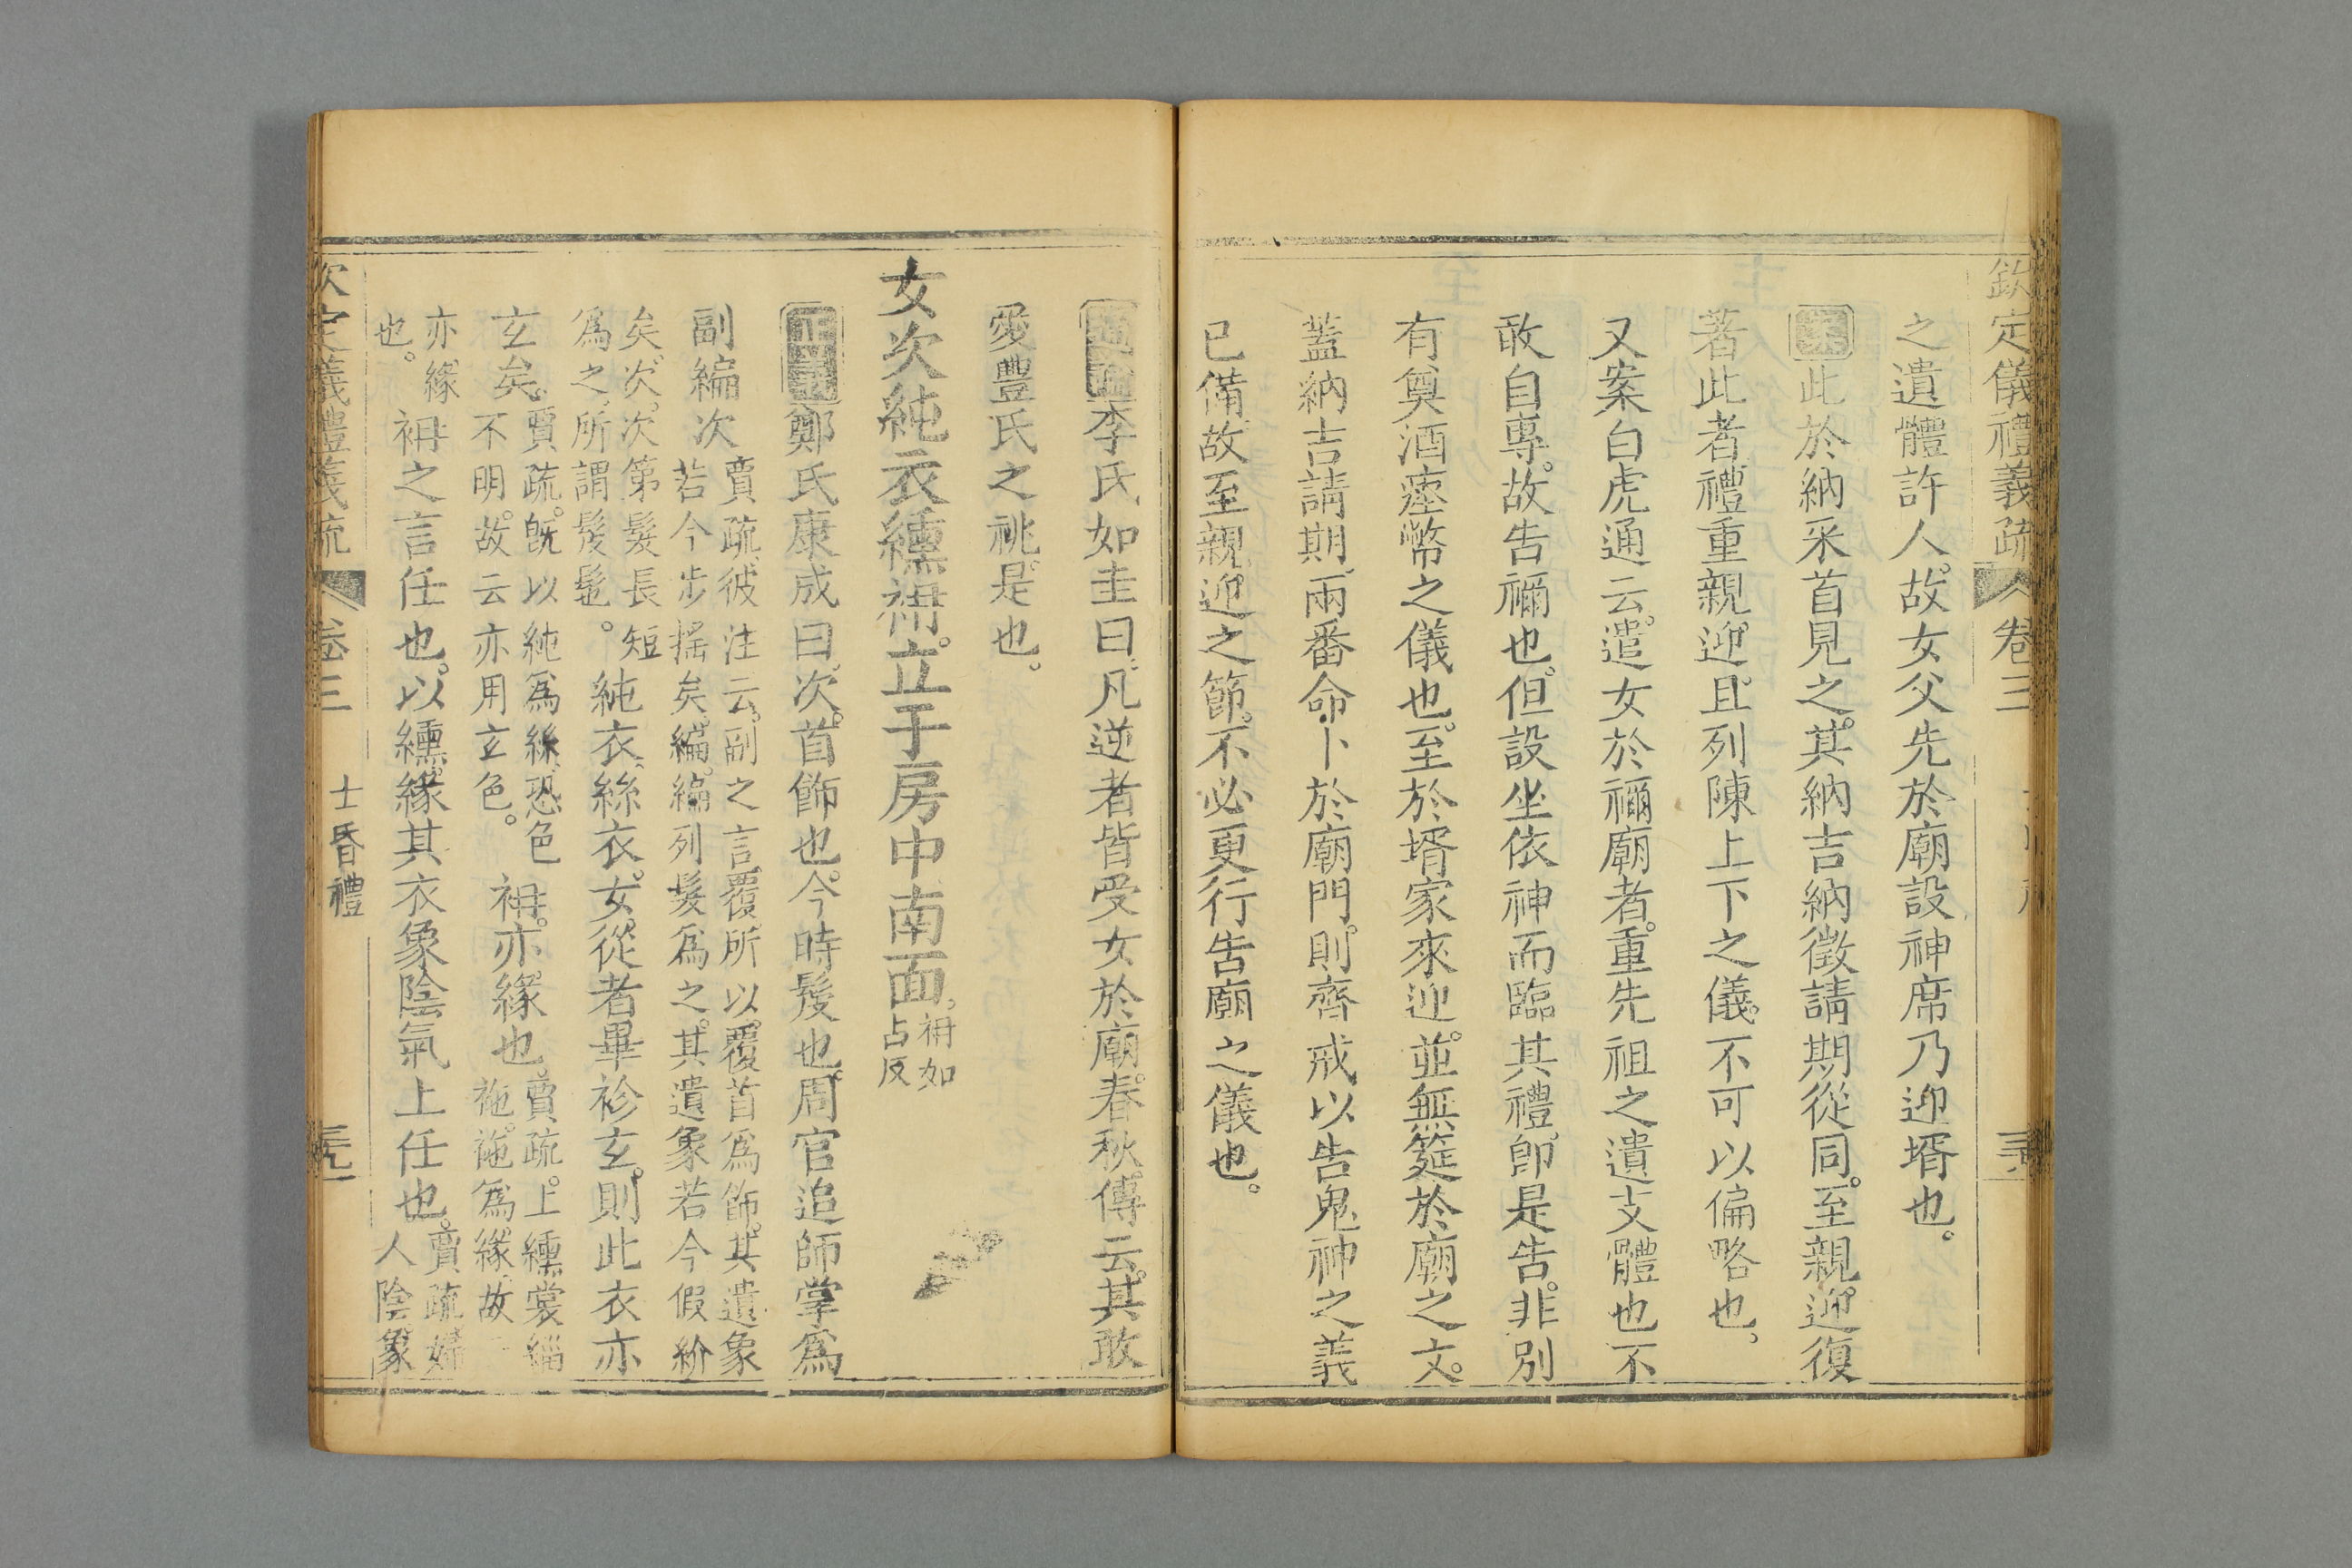 欽定儀禮義疏 卷三
之遺體許人故女父先於廟設神席乃迎壻也。
案此於納采首見之其納吉納徵請期從同至親迎復
著此者禮重親迎且列陳上下之儀不可以偏略也。
又案白虎通云遣女於禰廟者重先祖之遺支體也不
敢自專故告禰也但設坐依神而臨其禮即是告非別
有奠酒瘞幣之儀也至於壻家來迎並無筵於廟之文。
蓋納吉請期兩番命卜於廟門則齊戒以告鬼神之義
已備故至親迎之節不必更行告廟之儀也。
通論李氏如圭曰凡逆者皆受女於廟春秋傳云其敢
愛豐氏之祧是也。
女次純衣纁袡立于房中南面。袡如
占反
正義鄭氏康成曰次首飾也今時髲也周官追師掌為
副編次賈疏彼注云副之言覆所以覆首為飾其遺象
若今步搖矣編編列髮為之其遺象若今假紒
矣次次第髮長短
為之所謂髲髢。純衣絲衣女從者畢袗玄則此衣亦
玄矣。賈疏既以純為絲恐色
不明故云亦用玄色。袡亦緣也。賈疏上纁裳緇
袘袘為緣故
亦緣
也。袡之言任也以纁緣其衣象陰氣上任也。賈疏婦
人陰象
欽定儀禮義疏 卷三 士昏禮